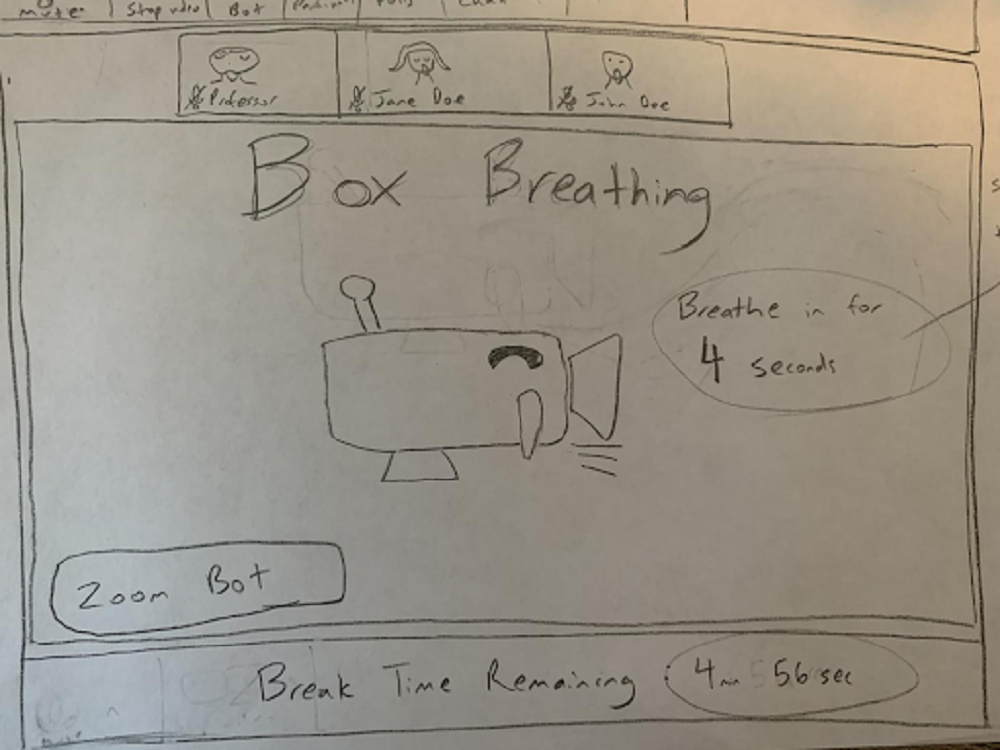 mute Stop video Bot Polls
Professor Jane Doe John Doe
Box Breathing
Breathe in for
4 seconds
Zoom Bot
Break Time Remaining : 4m 56 sec